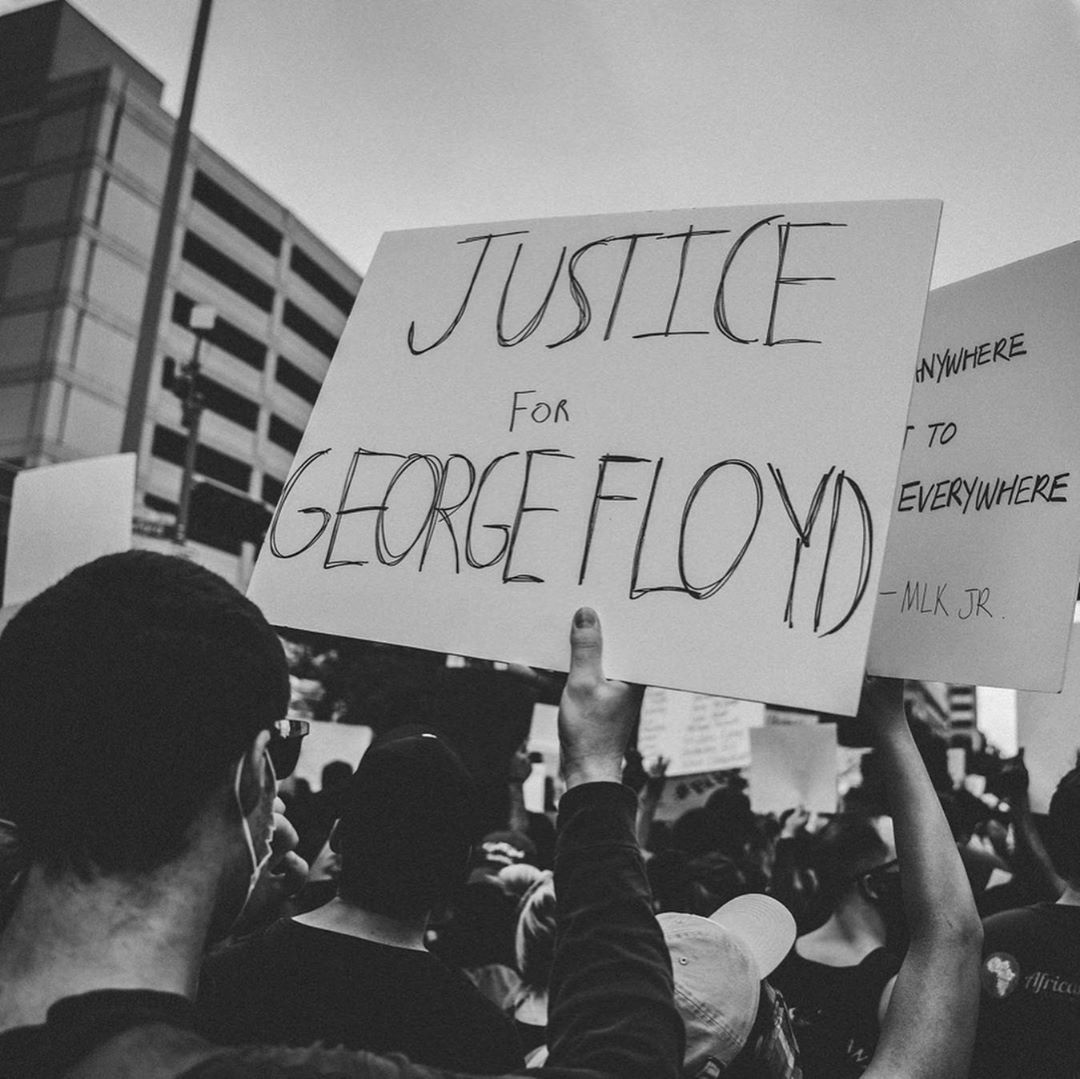 JUSTICE
FOR
GEORGE FLOYD
ANYWHERE
TO
EVERYWHERE
- MLK JR.
Africa